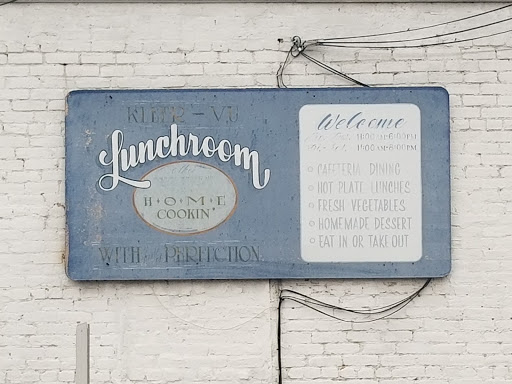 KLEER-VU
Lunchroom
H·O·M·E
COOKIN'
WITH PERFECTION
Welcome
CAFETERIA DINING
HOT PLATE LUNCHES
FRESH VEGETABLES
HOMEMADE DESSERT
EAT IN OR TAKE OUT